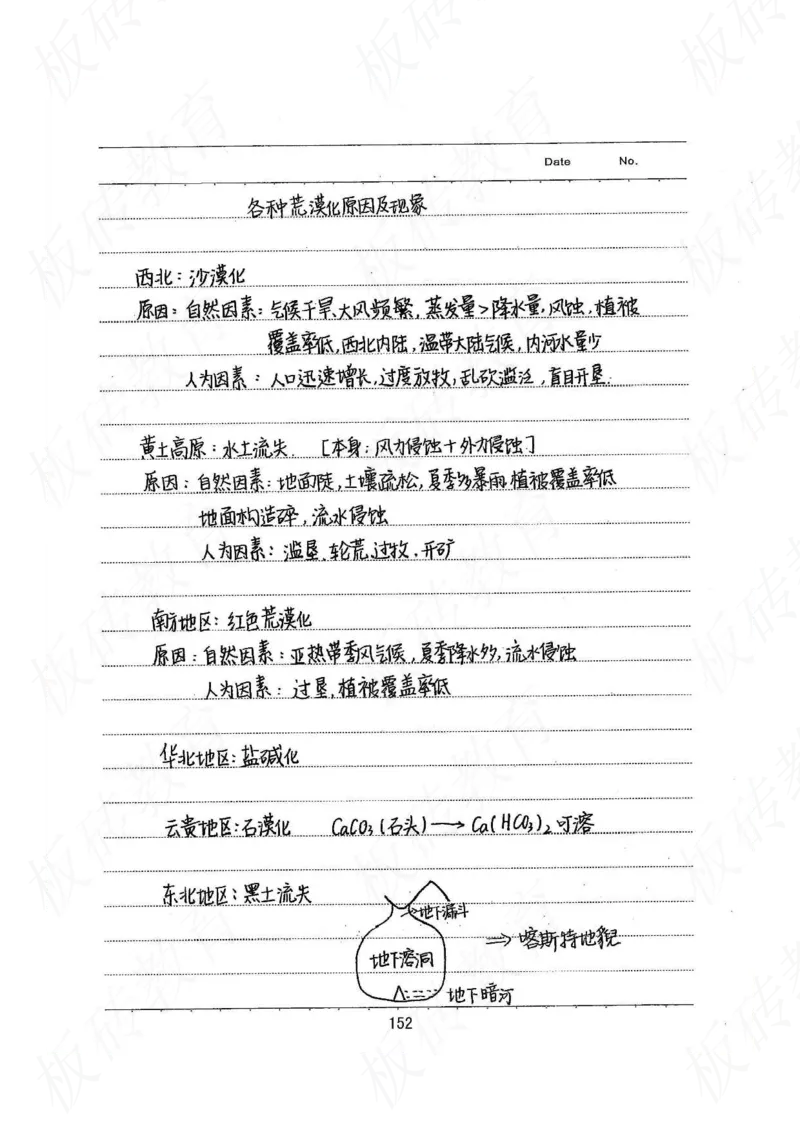 Date No.
各种荒漠化原因及现象
西北：沙漠化
原因：自然因素：气候干旱、大风频繁，蒸发量>降水量，风蚀，植被
覆盖率低，西北内陆，温带大陆气候，内河水量少
人为因素：人口迅速增长，过度放牧，乱砍滥泛，盲目开垦.
黄土高原：水土流失 [本身：风力侵蚀+外力侵蚀]
原因：自然因素：地面陡，土壤疏松，夏季多暴雨，植被覆盖率低
地面构造碎，流水侵蚀
人为因素：滥垦，轮荒，过牧，开矿
南方地区：红色荒漠化
原因：自然因素：亚热带季风气候，夏季降水多，流水侵蚀
人为因素：过垦，植被覆盖率低
华北地区：盐碱化
云贵地区：石漠化 CaCO₃(石头)→Ca(HCO₃)₂可溶
东北地区：黑土流失
地下漏斗
⇒喀斯特地貌
地下溶洞
地下暗河
152
板砖教育